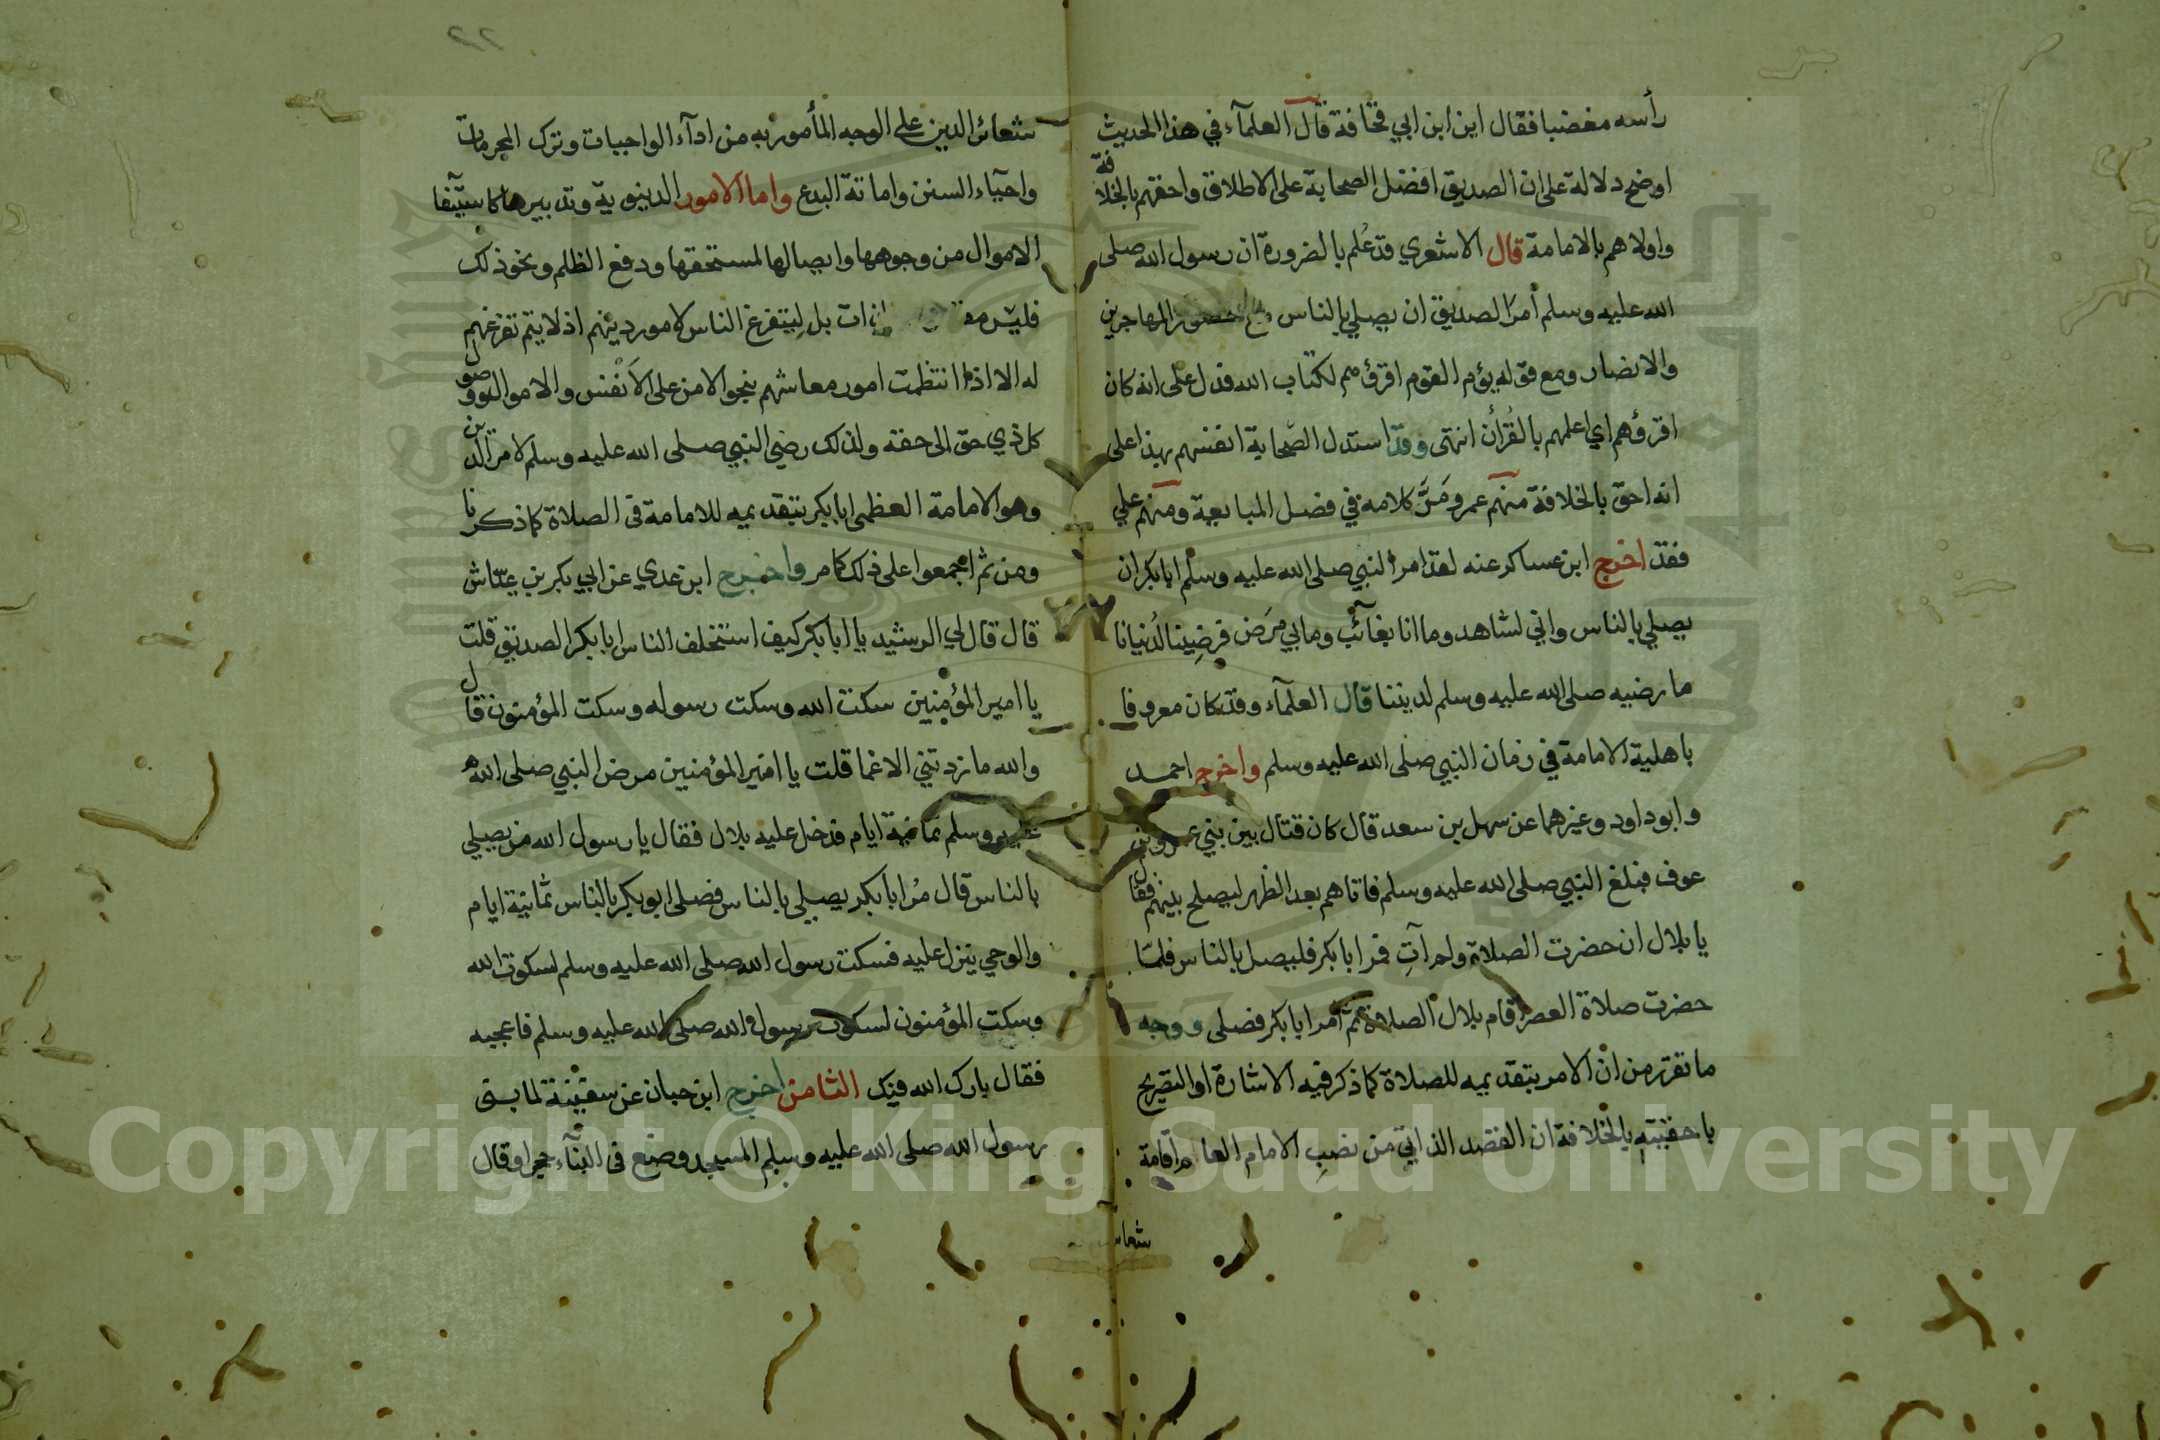 رأسه مغضبا فقال اين ابن ابي قحافة قال العلمآء في هذا الحديث
اوضح دلالة على ان الصديق افضل الصحابة على الاطلاق واحقهم بالخلافة
واولاهم بالامامة قال الاشعري قد عُلم بالضرورة ان رسول الله صلى
الله عليه وسلم أمرَ الصديق ان يصلي بالناس مع حضور المهاجرين
والانصار ومع قوله يؤم القوم اقرؤهم لكتاب الله فدل على انه كان
اقرؤهم اي اعلمهم بالقُرأن انتهى وقد استدل الصّحابة انفسهم بهذا على
انه احق بالخلافة منهم عمر ومَرَّ كلامه في فضل المبايعة ومنهم علي
فقد اخرج ابن عساكر عنه لقد امر النبي صلى الله عليه وسلم ابا بكر ان
يصلي بالناس واني لشاهد وما انا بغآئب وما بي مرَض فرضِينا لدُنيانا
ما رضيه صلى الله عليه وسلم لديننا قال العلمآء وقد كان معروفا
باهلية الامامة في زمان النبي صلى الله عليه وسلم واخرج احمد
وابو داود وغيرهما عن سهل بن سعد قال كان قتال بين بني عمرو بن
عوف فبلغ النبي صلى الله عليه وسلم فاتاهم بعد الظهر ليصلح بينهم فقال
يا بلال ان حضرت الصلاة ولم آتِ فمر ابا بكر فليصل بالناس فلمّا
حضرت صلاة العصر اقام بلال الصلاة ثم أمر ابا بكر فصلى ووجه
ما تقرّر من ان الامر بتقديمه للصلاة كما ذكر فيه الاشارة او التصريح
باحقيته بالخلافة ان القصد الذاتي من نصب الامام العام اقامة
شعاير
٢٢
شعائر الدين على الوجه المأمور به من ادآء الواجبات وترك المحرمات
واحيآء السنن واماتة البدع واما الامور الدينوية وتدبيرها كاستيفا
الاموال من وجوهها وايصالها لمستحقها ودفع الظلم ونحو ذلك
فليس ات بل لِيتفرغ الناس لامور دينهم اذ لا يتم تفرغهم
له الا اذا انتظمت امور معاشهم بنحو الامن على الاَنْفس والاموال ووصول
كل ذي حق الى حقه ولذلك رضي النبي صلى الله عليه وسلم لامر الدين
وهو الامامة العظمى ابا بكر بتقديمه للامامة في الصلاة كما ذكرنا
ومن ثم اجمعوا على ذلك كما مر واخرج ابن عدي عن ابي بكر بن عيّاش
قال قال لي الرشيد يا ابا بكر كيف استخلف الناس ابا بكر الصديق قلت
يا امير المؤمنين سكت الله وسكت رسوله وسكت المؤمنون قال
والله ما زدتني الا غما قلت يا امير المؤمنين مرض النبي صلى الله
عليه وسلم ثمانية ايام فدخل عليه بلال فقال يا رسول الله من يصلي
بالناس قال مُر ابا بكر يصلي بالناس فصلى ابو بكر بالناس ثمانية ايام
والوحي ينزل عليه فسكت رسول الله صلى الله عليه وسلم لسكوت الله
وسكت المؤمنون لسكوت رسول الله صلى الله عليه وسلم فاعجبه
فقال بارك الله فيك الثامن اخرج ابن حبان عن سفينة لما بنى
رسول الله صلى الله عليه وسلم المسجد وضع في البنآء حجرا وقال
Copyright © King Saud University